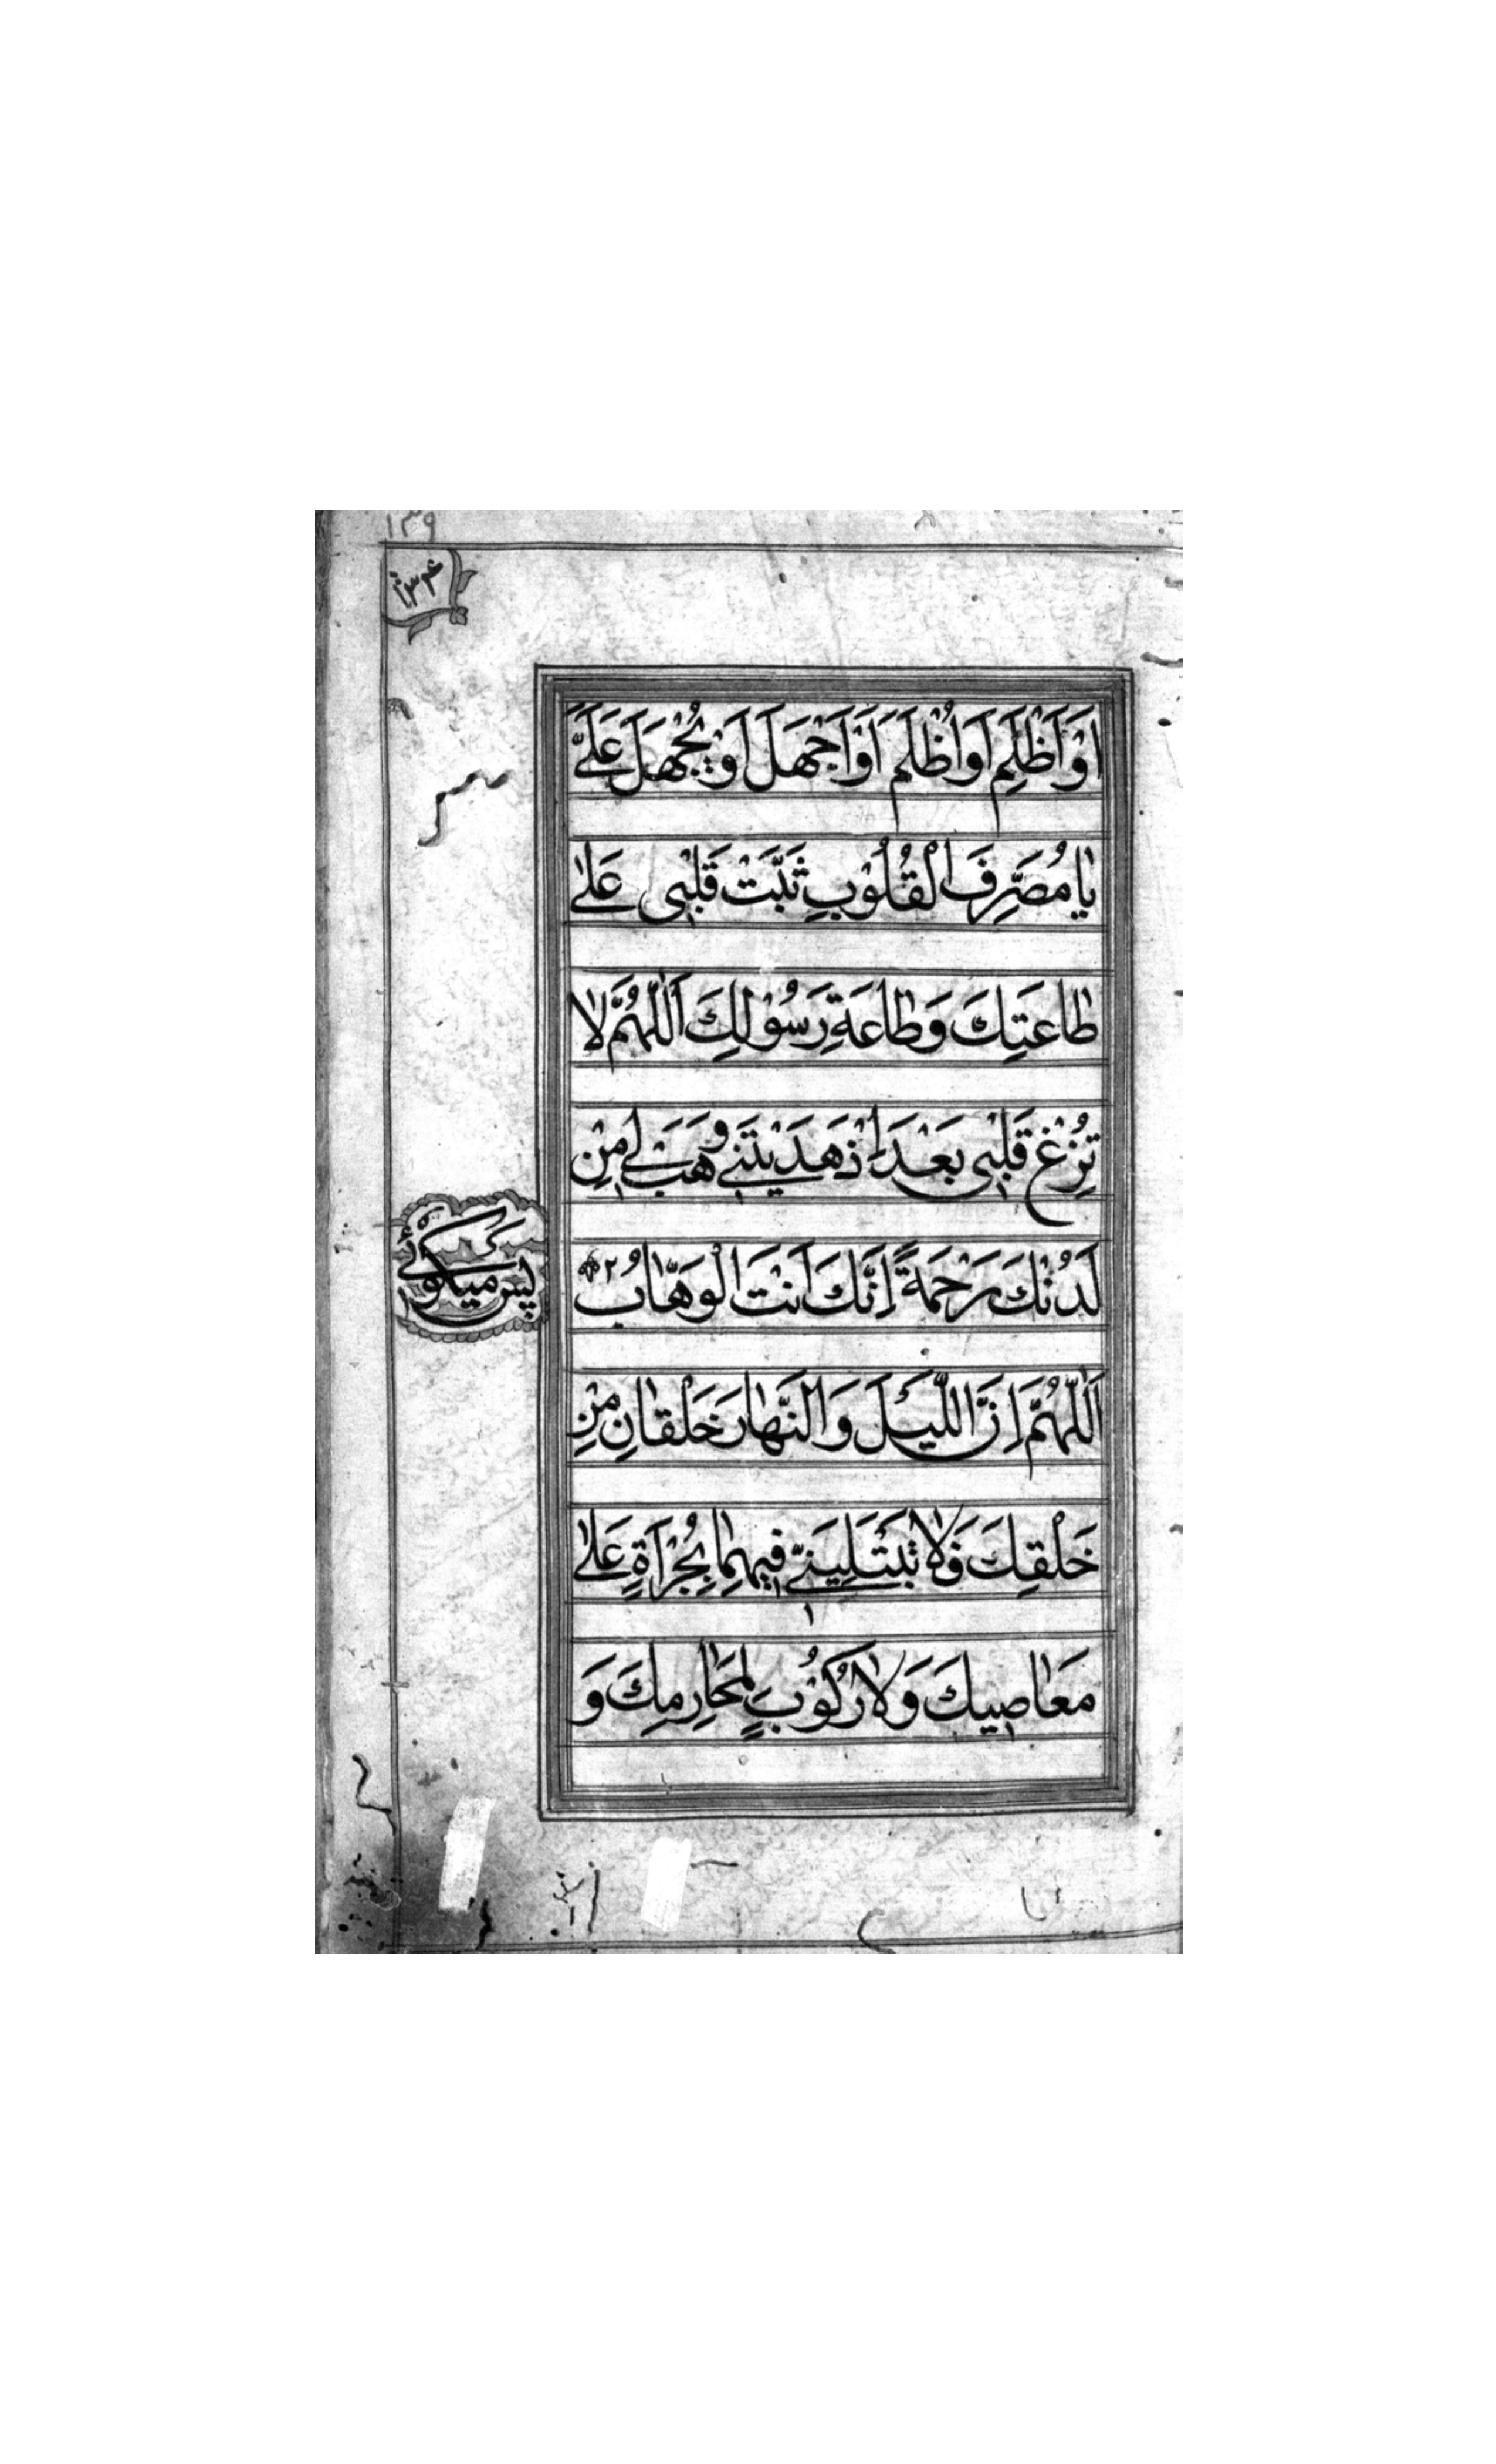 ١٣٩
١٣۴
اَوْ اَظْلِمَ اَوْ اُظْلَمَ اَوْ اَجْهَلَ اَوْ يُجْهَلَ عَلَىَّ
يٰا مُصَرِّفَ الْقُلُوْبِ ثَبِّتْ قَلْبٖى عَلٰى
طٰاعَتِكَ وَطٰاعَةِ رَسُوْلِكَ اَللّٰهُمَّ لٰا
تُزِغْ قَلْبٖى بَعْدَ اِذْ هَدَيْتَنٖى وَهَبْ لٖى مِنْ
لَدُنْكَ رَحْمَةً اِنَّكَ اَنْتَ الْوَهّٰابُ ٢
پس ميكوئى
اَللّٰهُمَّ اِنَّ اللَّيْلَ وَالنَّهٰارَ خَلْقٰانِ مِنْ
خَلْقِكَ فَلٰا تَبْتَلِيَنّٖى فٖيهِمٰا بِجُرْاَةٍ عَلٰى
مَعٰاصٖيكَ وَلٰا رُكُوْبٍ لِمَحٰارِمِكَ وَ